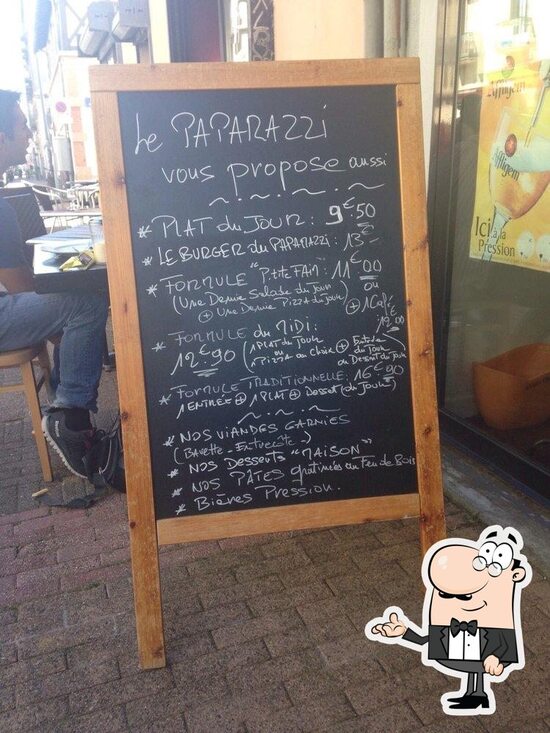 Le PAPARAZZi
vous propose aussi
* PLAT du JOUR : 9€.50
* LE BURGER du PAPARAZZI : 13€-
* FORMULE "P'tite FAIM" : 11€00
(Une Demie Salade du Jour ou
⊕ Une Demie Pizza du Jour) ⊕ 1 Café
12€00
* FORMULE du MIDI :
12€.90 (1 PLAT du Jour ou 1 PIZZA au Choix ⊕ Entrée du Jour ou Dessert du Jour)
* FORMULE TRADITIONNELLE : 16€.90
1 ENTRÉE ⊕ 1 PLAT ⊕ Dessert (du Jour)
* NOS VIANDES GARNIES
(Bavette - Entrecôte -)
* NOS Desserts "MAISON"
* NOS PÂTES gratinées au Feu de Bois
* Bières Pression.
Affligem
Affligem
Ici à la
Pression